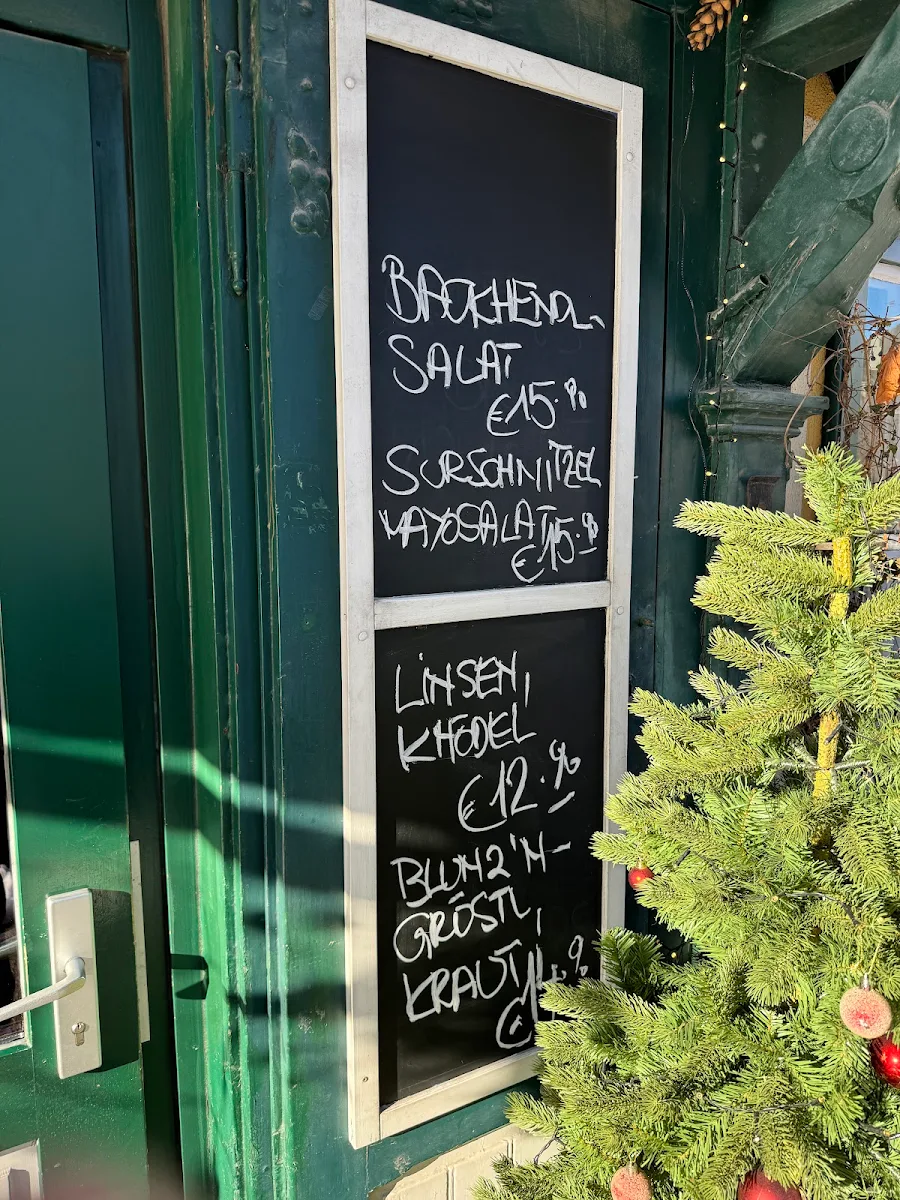 BACKHENDL-
SALAT
€15.90
SURSCHNITZEL
MAYOSALAT €15.90
LINSEN,
KNÖDEL
€12.90
BLUNZ'N-
GRÖSTL,
KRAUT